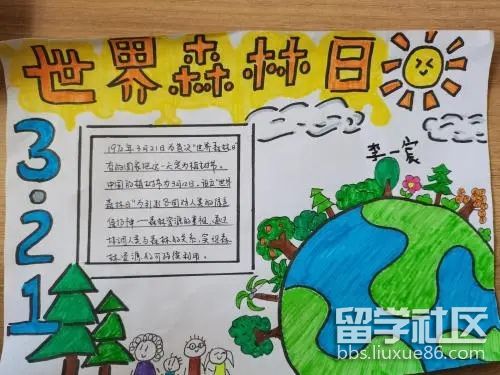 世界森林日
3·21
李一宸
1972年3月21日为首次"世界森林日"
有的国家把这一天定为植树节。
中国的植树节为3月12日。设立"世界
森林日"为引起各国对人类的绿色
保护神——森林资源的重视,通过
协调人类与森林的关系,实现森
林资源的可持续利用。
留学社区
bbs.liuxue86.com